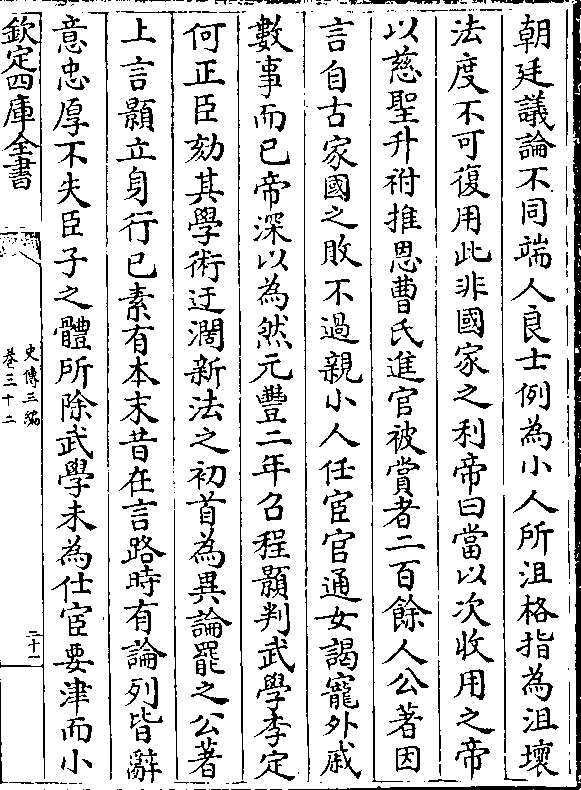 朝廷議論不同端人良士例為小人所沮格指為沮壊
法度不可復用此非國家之利帝曰當以次收用之帝
以慈聖升祔推恩曹氏進官被賞者二百餘人公著因
言自古家國之敗不過親小人任宦官通女謁寵外戚
數事而已帝深以為然元豐二年召程顥判武學李定
何正臣劾其學術迂濶新法之初首為異論罷之公著
上言顥立身行已素有本末昔在言路時有論列皆辭
意忠厚不失臣子之體所除武學未為仕宦要津而小
欽定四庫全書
史傳三編
卷三十二
二十一